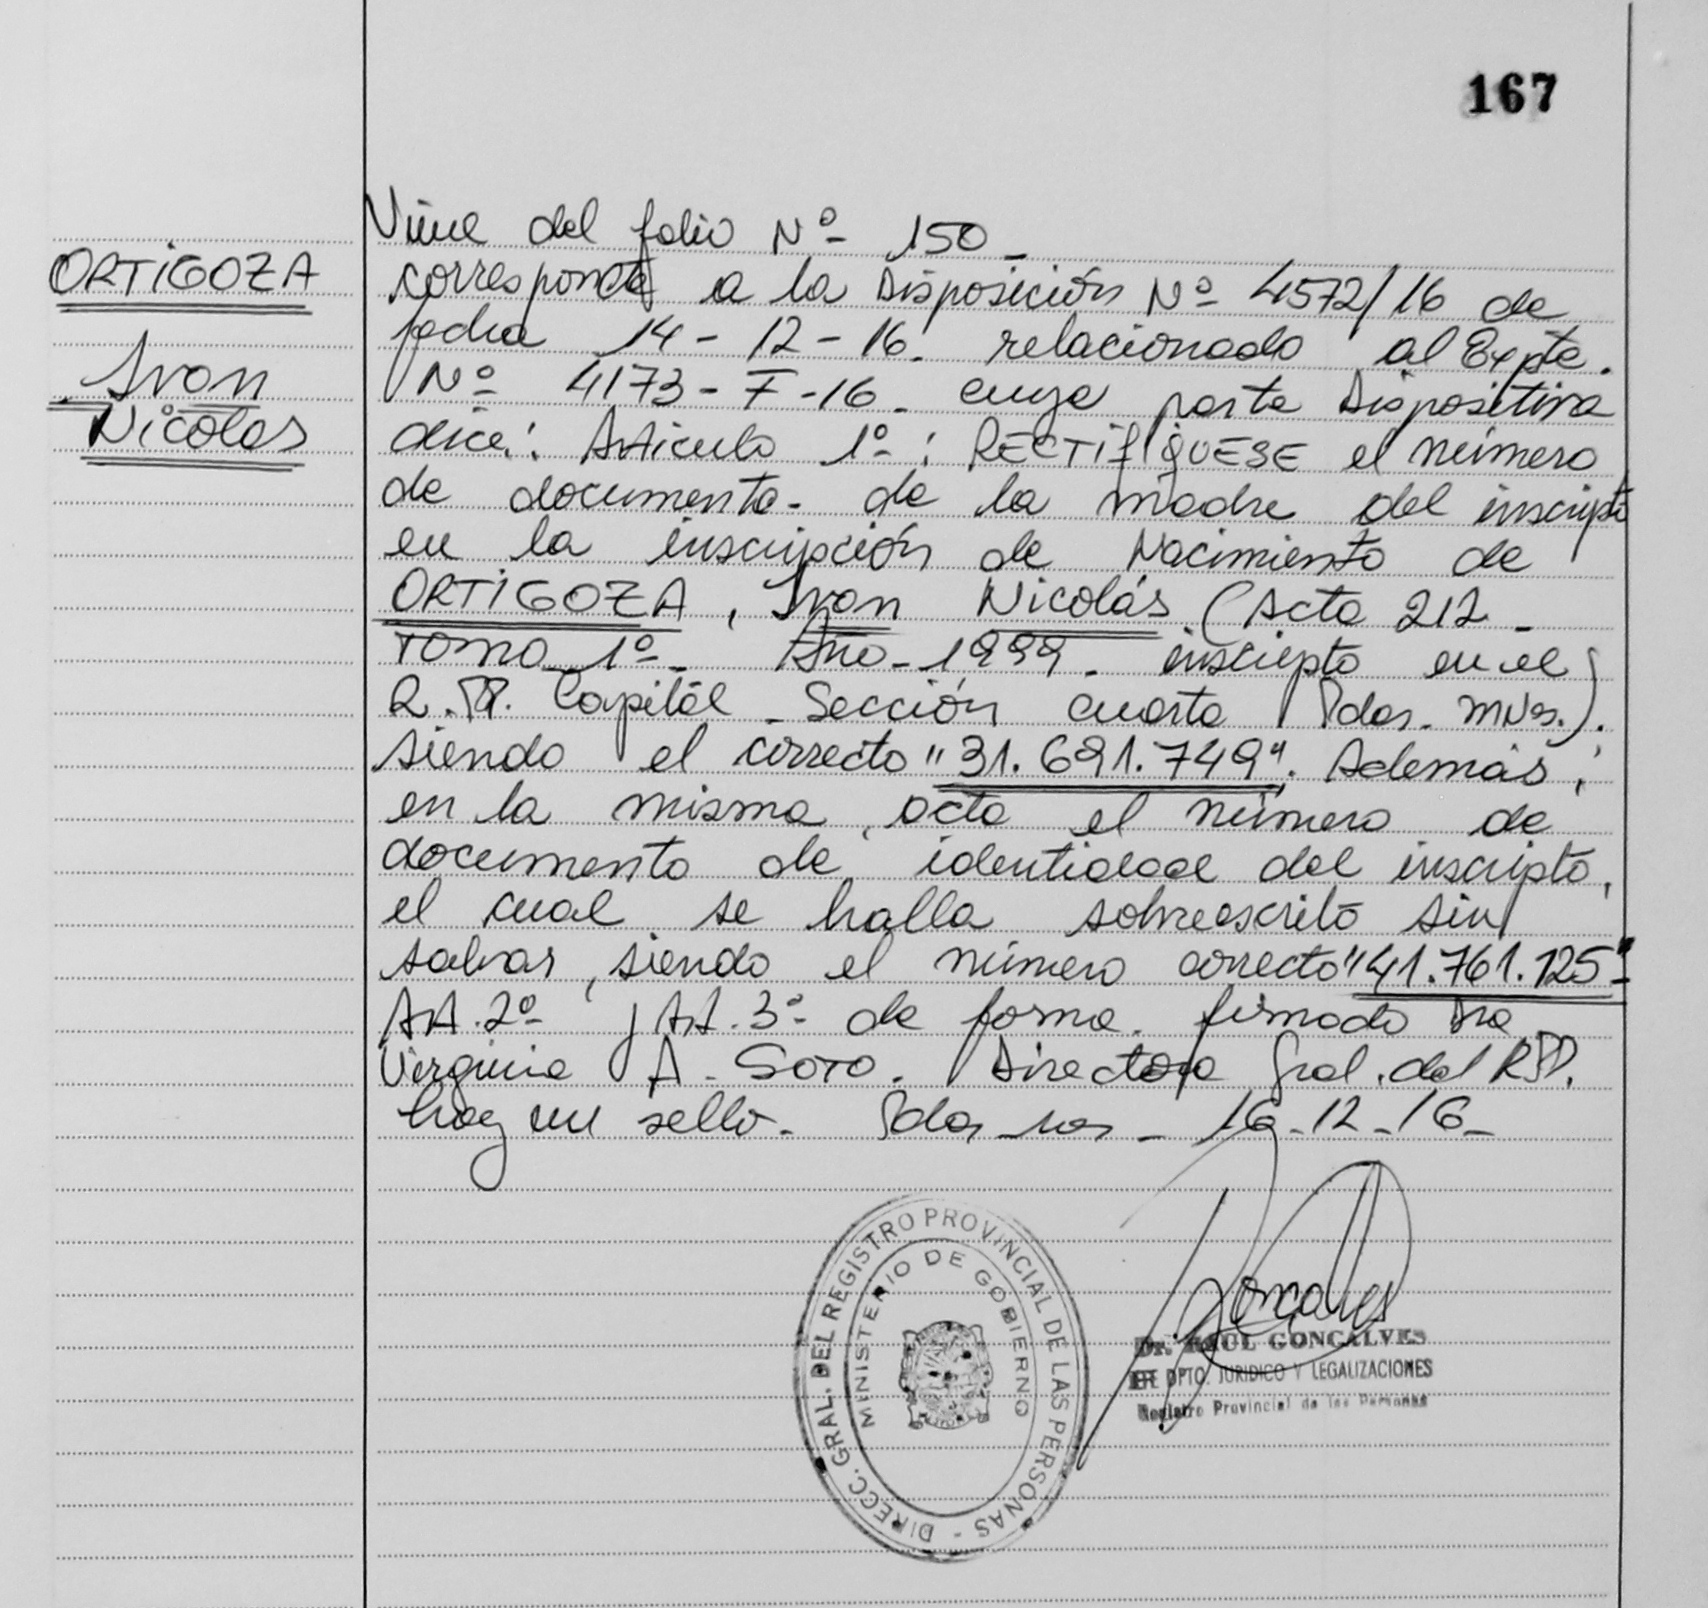 167
ORTIGOZA
Ivan
Nicolas
Viene del folio Nº 150 -
corresponde a la Disposición Nº 4572/16 de
fecha 14-12-16. relacionado al Expte.
Nº 4173-F-16. cuya parte Dispositiva
dice: Artículo 1º: RECTIFIQUESE el número
de documento. de la madre del inscripto
en la inscripción de Nacimiento de
ORTIGOZA, Ivan Nicolás (Acta 212 -
Tomo 1º - Año - 1999 - inscripto en el
R.P.P. Capital - Sección cuarta Pdas. Mnes.).
siendo el correcto "31.691.749". Además,
en la misma acta el número de
documento de identidad del inscripto,
el cual se halla sobreescrito sin
salvar, siendo el número correcto "41.761.125"-
Art. 2º y Art. 3º de forma. firmado Dra
Virginia A. Soto. Directora Gral. del RPP.
hay un sello. Pdas 16-12-16-
DIRECC. GRAL. DEL REGISTRO PROVINCIAL DE LAS PERSONAS -
MINISTERIO DE GOBIERNO
Goncalves
Dr. RAUL GONCALVES
DPTO. JURIDICO Y LEGALIZACIONES
Registro Provincial de las Personas